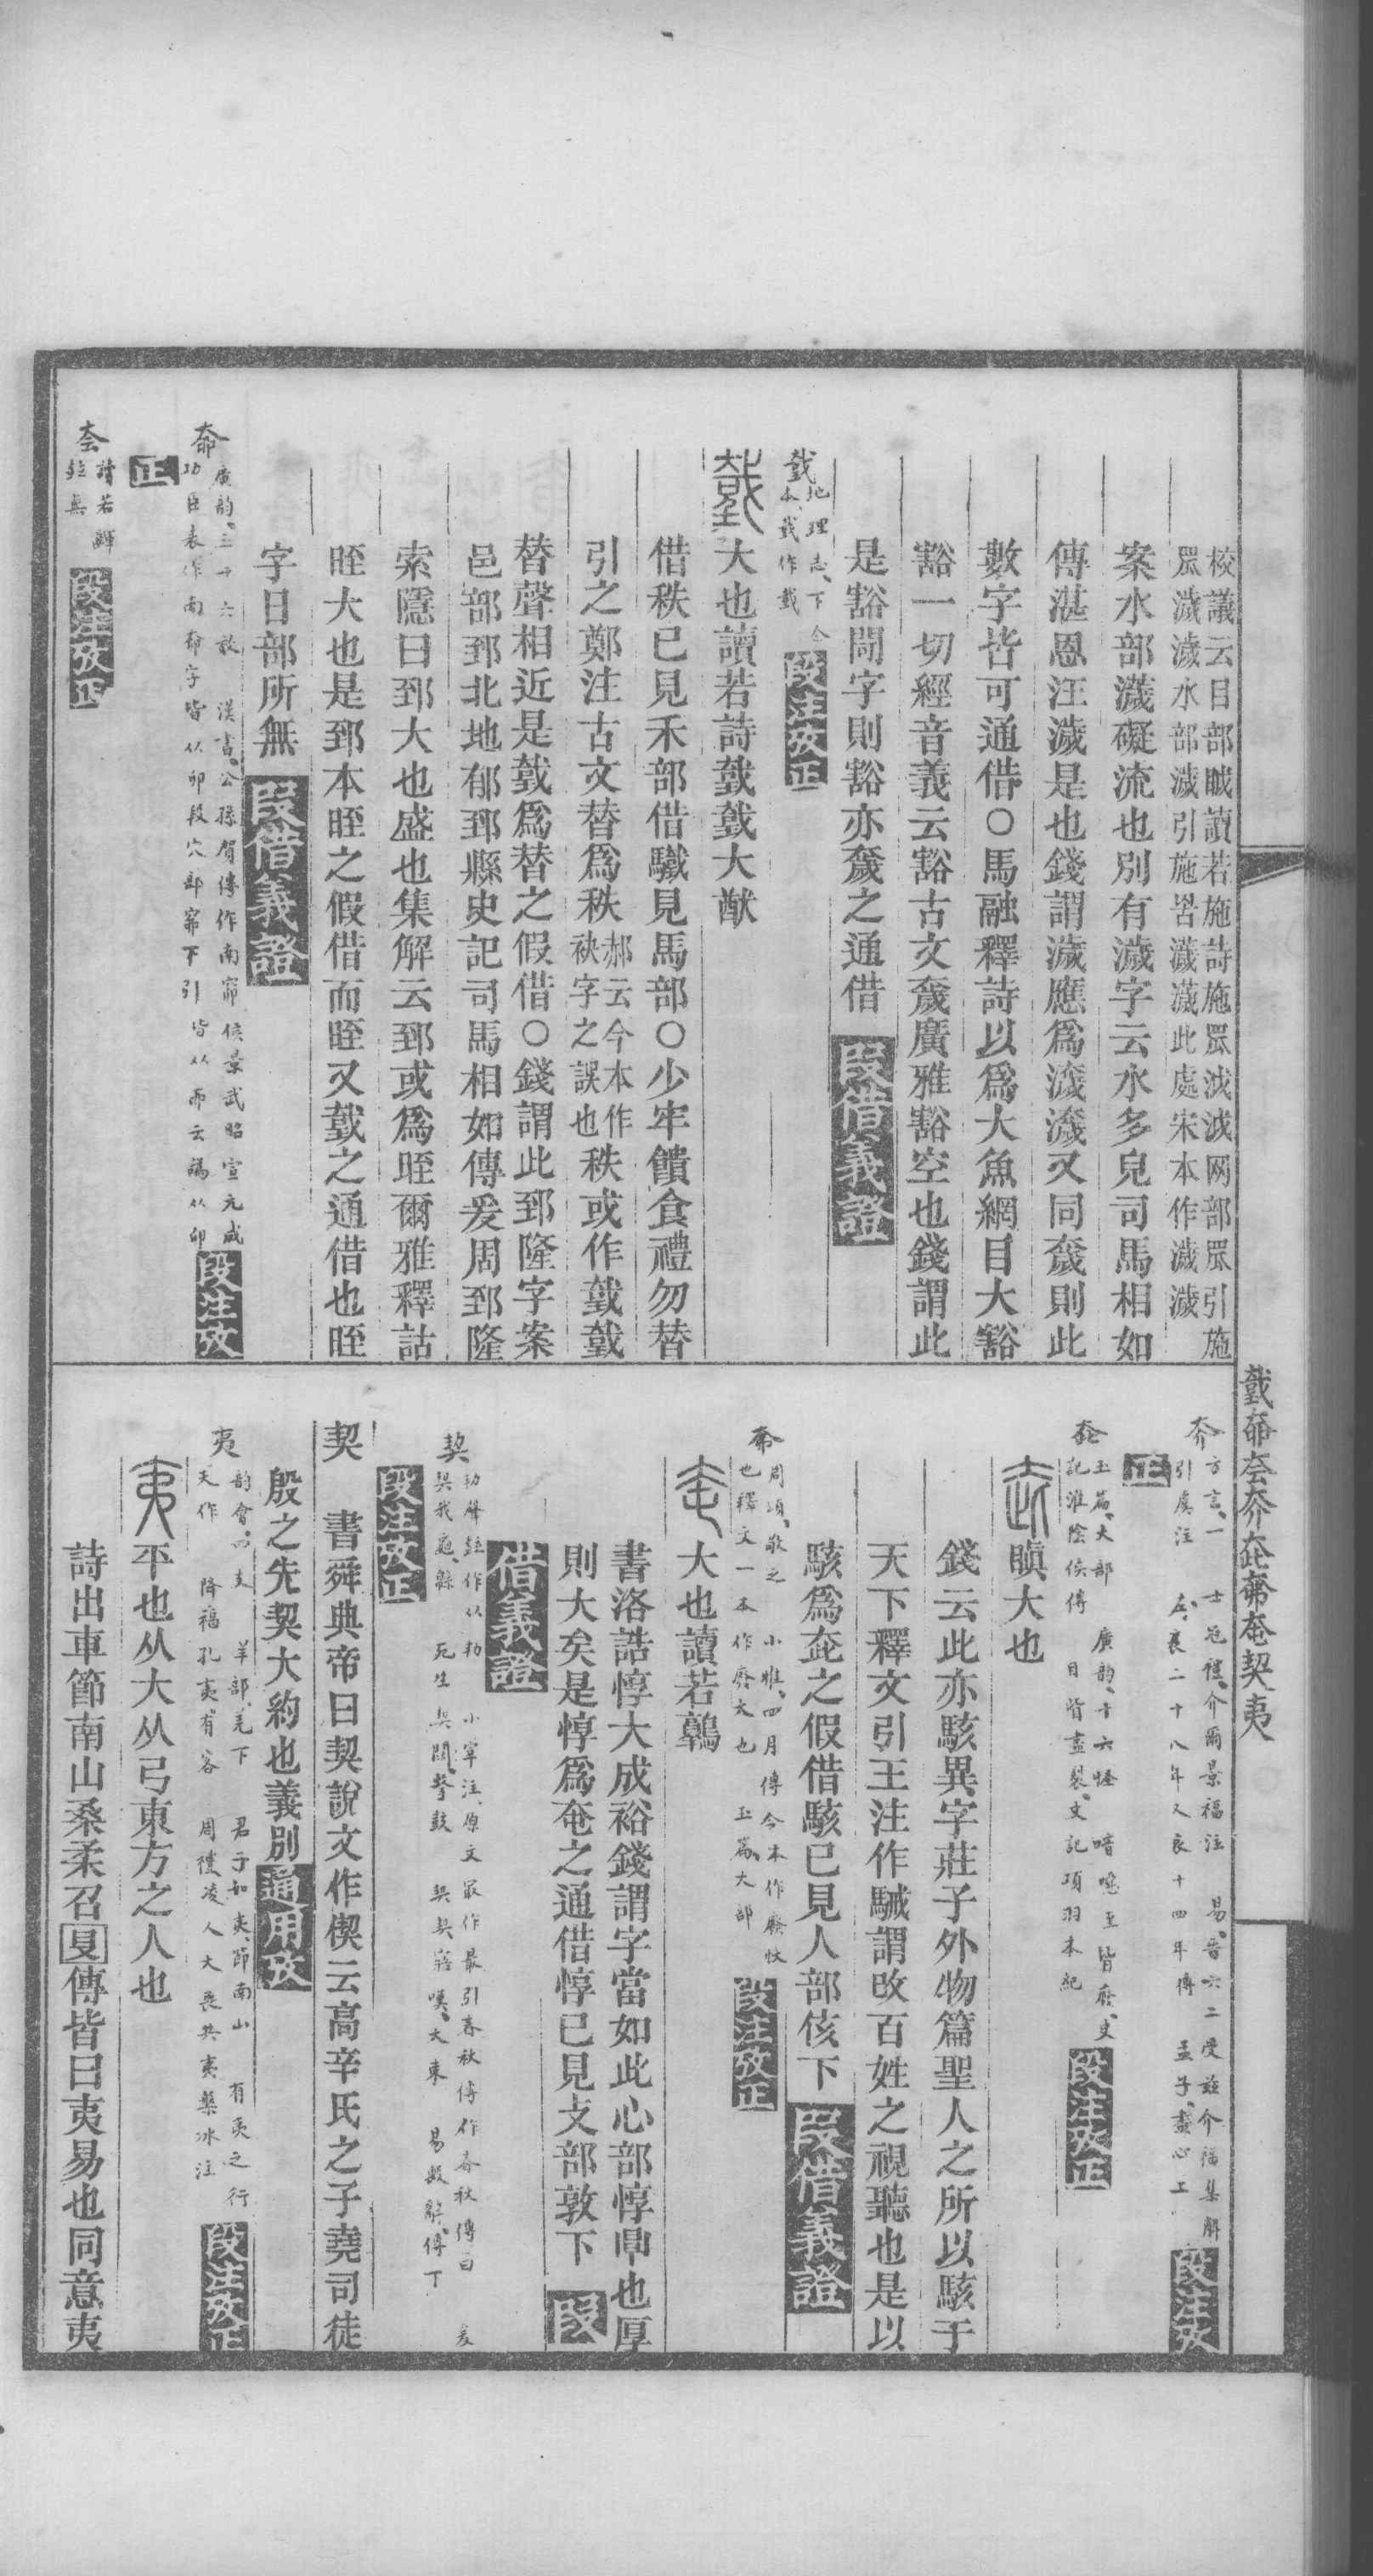 校議云目部眓讀若施詩施罛泧泧网部罛引施
罛濊濊水部濊引施罟𤄴𤄴此處宋本作濊濊
案水部𤄴礙流也別有濊字云水多皃司馬相如
傳湛恩汪濊是也錢謂濊應爲
又同奯則此
數字皆可通借○馬融釋詩以爲大魚網目大豁
豁一切經音義云豁古文奯廣雅豁空也錢謂此
是豁閜字則豁亦奯之通借 叚借義證
𢧜 地理志下今
本𢧜作载 段注攷正
大也讀若詩𢧜𢧜大猷
借秩已見禾部借驖見馬部○少牢饋食禮勿替
引之鄭注古文替爲秩
郝云今本作
袂字之誤也
秩或作𢧜𢧜
替聲相近是𢧜爲替之假借○錢謂此郅隆字案
邑部郅北地郁郅縣史記司馬相如傳爰周郅隆
索隱曰郅大也盛也集解云郅或爲晊爾雅釋詁
晊大也是郅本晊之假借而晊又𢧜之通借也晊
字日部所無 叚借義證
奅 廣韵三十六效 漢書公孫賀傳作南窌 侯景武昭宣元成
功臣表作南奅字皆从卯段穴部窌下引皆从丣云譌从卯
段注攷
正
讀若
段注攷正
𢧜奅
契夷
夰 方言一 士冠禮介爾景福注 易晉六二受兹介福集解
引虞注 左襄二十八年又哀十四年傳 孟子盡心上
段注攷
正
玉篇大部 廣韵十六怪 喑噁至皆廢史
記淮陰侯傳 目眥盡裂史記項羽本紀
段注攷正
瞋大也
錢云此亦駭異字莊子外物篇聖人之所以駭于
天下釋文引王注作駴謂改百姓之視聽也是以
駭爲
之假借駭已見人部侅下 叚借義證
周頌敬之 小雅四月傳今本作廢忕
也釋文一本作廢大也 玉篇大部
段注攷正
大也讀若鶉
書洛誥惇大成裕錢謂字當如此心部惇𠪋也厚
則大矣是惇爲奄之通借惇已見攴部敦下 叚
借義證
契 㓞聲
作从㓞 小宰注原文
作最引春秋傳作春秋傳曰 爰
契我龜緜 死生契闊擊鼓 契契寤嘆大東 易
辭傳下
段注攷正
契 書舜典帝曰契說文作偰云高辛氏之子堯司徒
殷之先契大約也義別 通用攷
夷 韵會四支 羊部羌下 君子如夷節南山 有夷之行
天作 降福孔夷有客 周禮凌人大喪共夷槃冰注
段注攷正
平也从大从弓東方之人也
詩出車節南山桑柔召旻傳皆曰夷易也同意夷